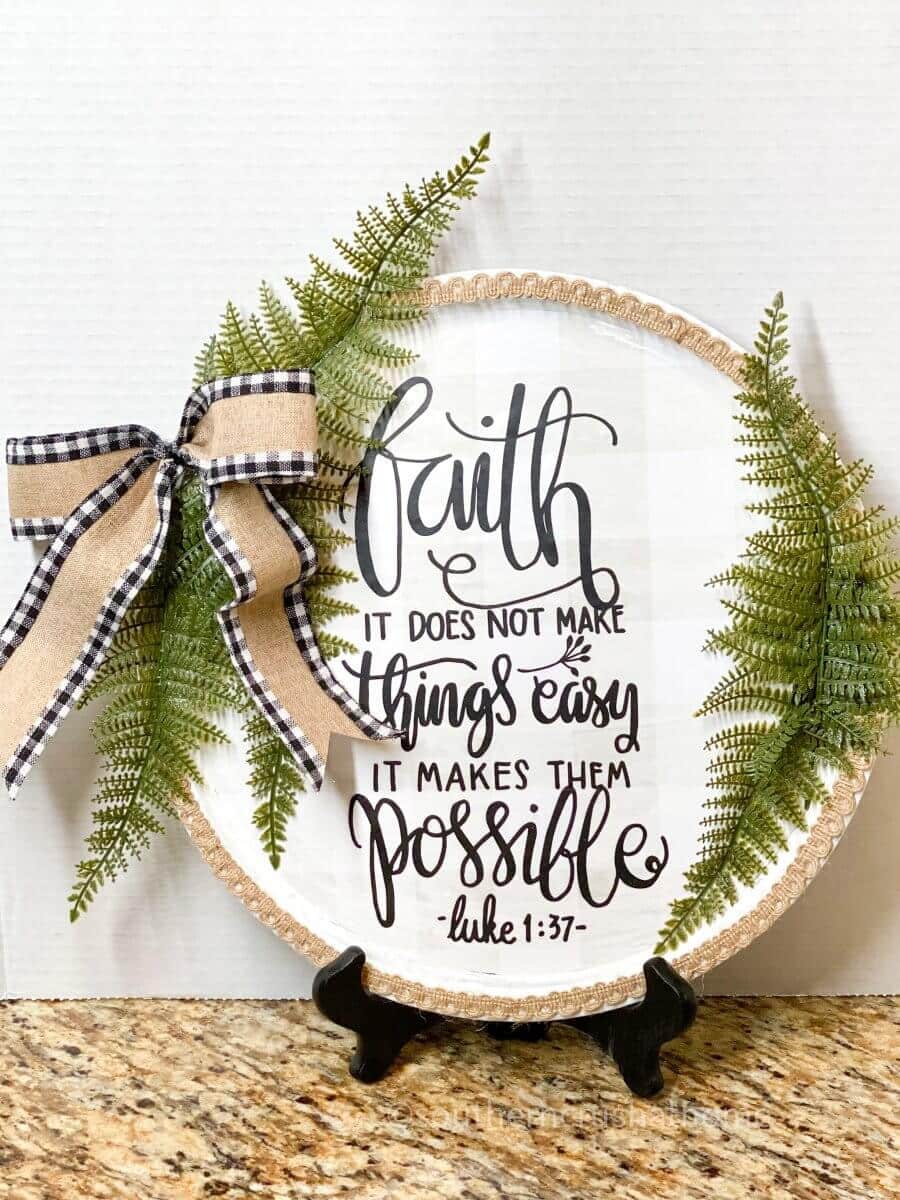 faith
IT DOES NOT MAKE
things easy
IT MAKES THEM
possible
-luke 1:37-